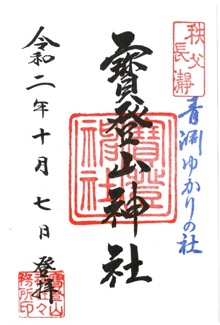 秩父
長瀞
青淵ゆかりの社
寳登山神社
寳登山
神社
令和二年十月七日登拝
寳登山
神社々
務所印